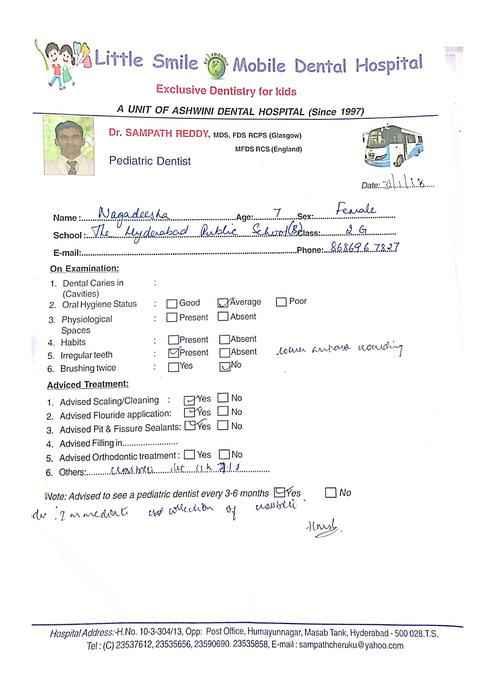 Little Smile Mobile Dental Hospital
Exclusive Dentistry for kids
A UNIT OF ASHWINI DENTAL HOSPITAL (Since 1997)
Dr. SAMPATH REDDY, MDS, FDS RCPS (Glasgow)
MFDS RCS (England)
Pediatric Dentist
Date:
Name: Nagadeesha Age: 7 Sex: Female
School: The Hyderabad Public School Class: 2 G
E-mail: Phone: 8686967827
On Examination:
1. Dental Caries in :
(Cavities)
2. Oral Hygiene Status : Good Average Poor
3. Physiological : Present Absent
Spaces
4. Habits : Present Absent
5. Irregular teeth : Present Absent lower anterior crowding
6. Brushing twice : Yes No
Adviced Treatment:
1. Advised Scaling/Cleaning : Yes No
2. Advised Flouride application: Yes No
3. Advised Pit & Fissure Sealants: Yes No
4. Advised Filling in
5. Advised Orthodontic treatment : Yes No
6. Others:
Note: Advised to see a pediatric dentist every 3-6 months Yes No
immediate of
Hospital Address:-H.No. 10-3-304/13, Opp: Post Office, Humayunnagar, Masab Tank, Hyderabad - 500 028.T.S.
Tel : (C) 23537612, 23535656, 23590690. 23535858, E-mail : sampathcheruku@yahoo.com